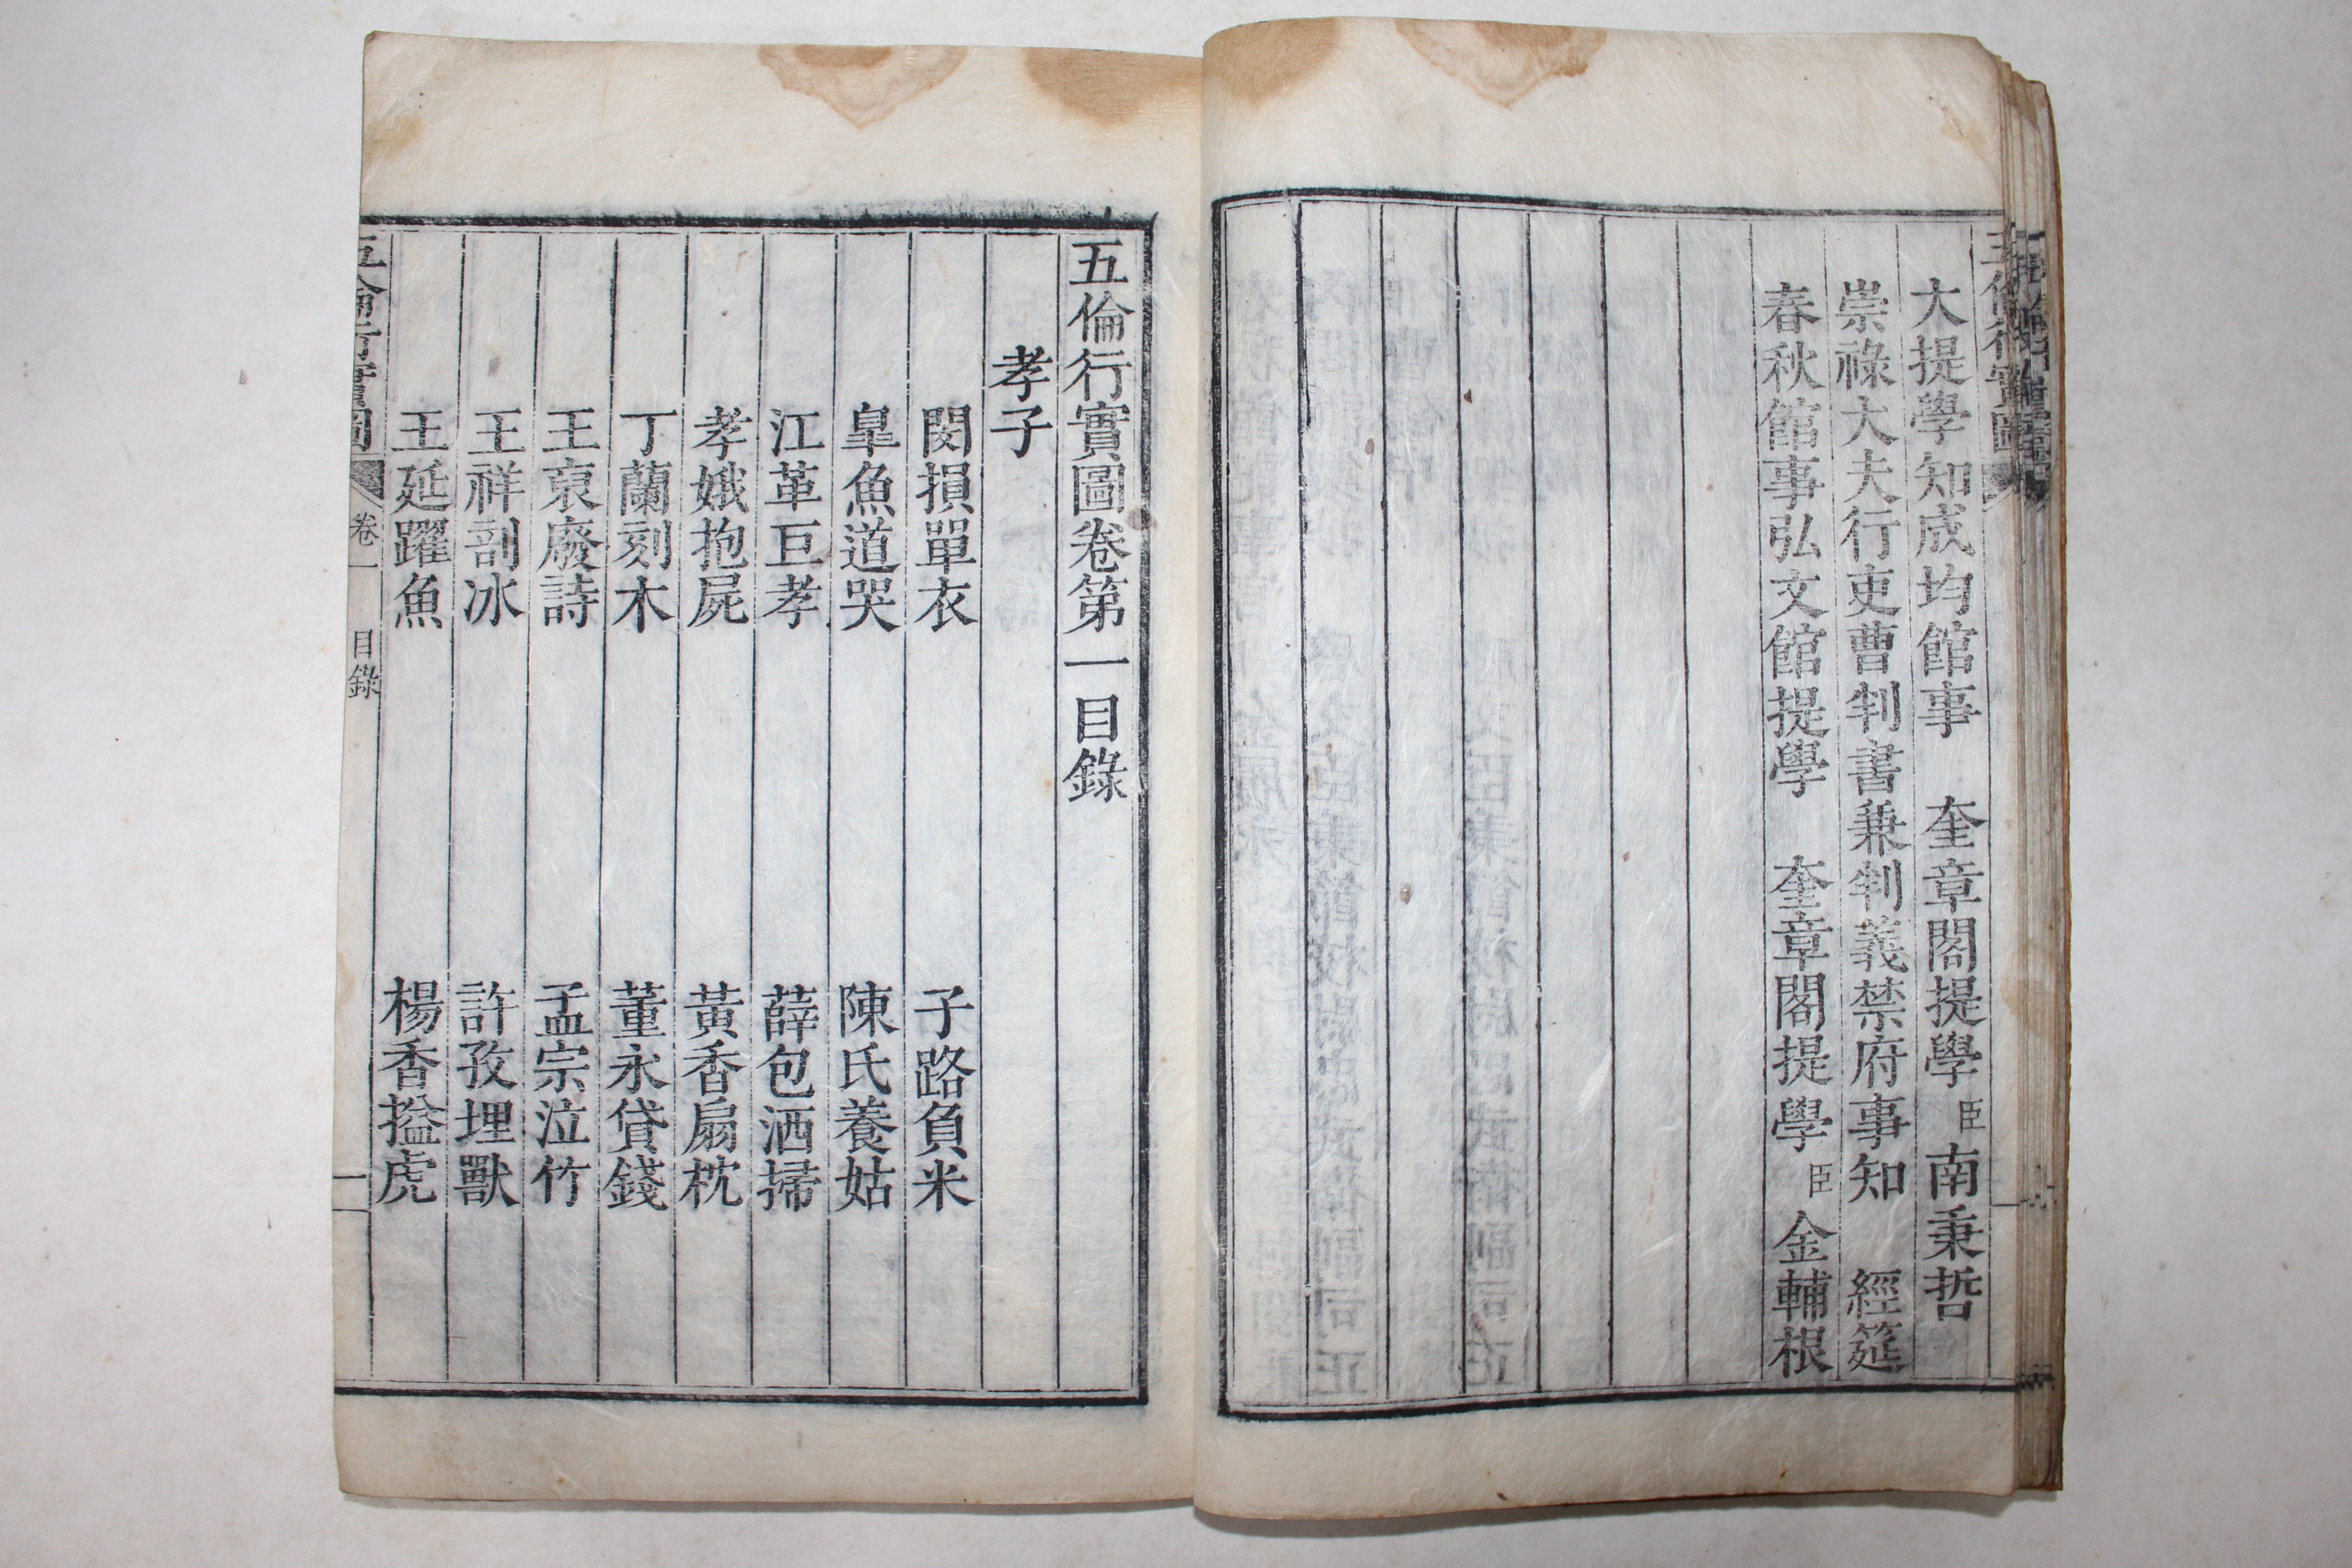 大提學知成均館事　奎章閣提學臣南秉哲
崇祿大夫行吏曹判書兼判義禁府事知　經筵
春秋館事弘文館提學　奎章閣提學臣金輔根
五倫行實圖卷第一目錄
孝子
閔損單衣　子路負米
皐魚道哭　陳氏養姑
江革巨孝　薛包洒掃
孝娥抱屍　黃香扇枕
丁蘭刻木　董永貸錢
王裒廢詩　孟宗泣竹
王祥剖冰　許孜埋獸
王延躍魚　楊香搤虎
五倫行實圖　卷一　目錄　一